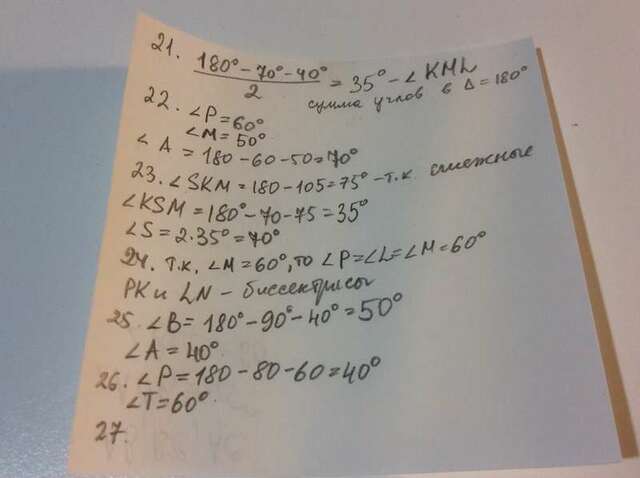 21. (180° - 70° - 40°) / 2 = 35° - ∠ KML
сумма углов в Δ = 180°
22. ∠P = 60°
∠M = 50°
∠A = 180 - 60 - 50 = 70°
23. ∠SKM = 180 - 105 = 75° - т.к. смежные
∠KSM = 180° - 70 - 75 = 35°
∠S = 2·35° = 70°
24. т.к. ∠M = 60°, то ∠P = ∠L = ∠M = 60°
PK и LN - биссектрисы
25. ∠B = 180° - 90° - 40° = 50°
∠A = 40°
26. ∠P = 180 - 80 - 60 = 40°
∠T = 60°
27.